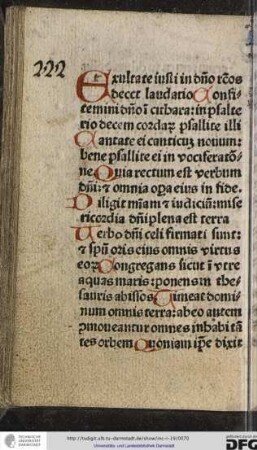 222
Exultate iusti in dño rc̃os
decet laudatio Confi⸗
temini dño ĩ cithara: in psalte
rio decem cordaꝝ psallite illi
Cantate ei canticũ nouum:
bene psallite ei in vociferatõ⸗
ne Quia rectum est verbum
dñi: ⁊ omnia oꝑa eius in fide.
Diligit mĩam ⁊ iudiciũ: mise
ricordia dñi plena est terra
Verbo dñi celi firmati sunt:
⁊ spũ oris eius omnis virtus
eoꝝ Congregans sicut ĩ vtre
aquas maris: ponens in the⸗
sauris abissos Timeat domi⸗
num omnis terra: ab eo autem
ꝓmoueantur omnes inhabitã
tes orbem Quoniam ip̃e dixit
TECHNISCHE
UNIVERSITÄT
DARMSTADT
http://tudigit.ulb.tu-darmstadt.de/show/inc-ii-19/0070
Universitäts- und Landesbibliothek Darmstadt
gefördert durch die
DFG